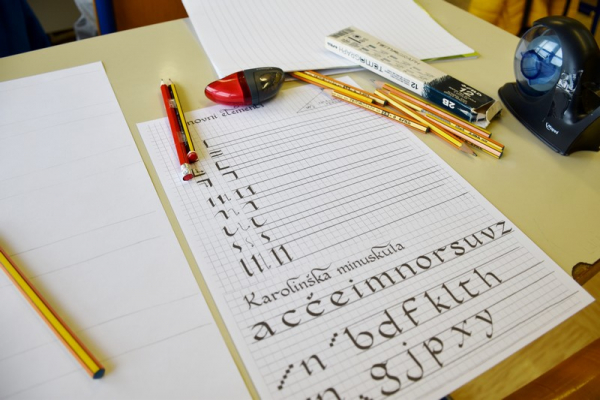 12
2B
novni
Karolinška minuskula
acčeimnorsuvz
n bdfklth
n gjpxy